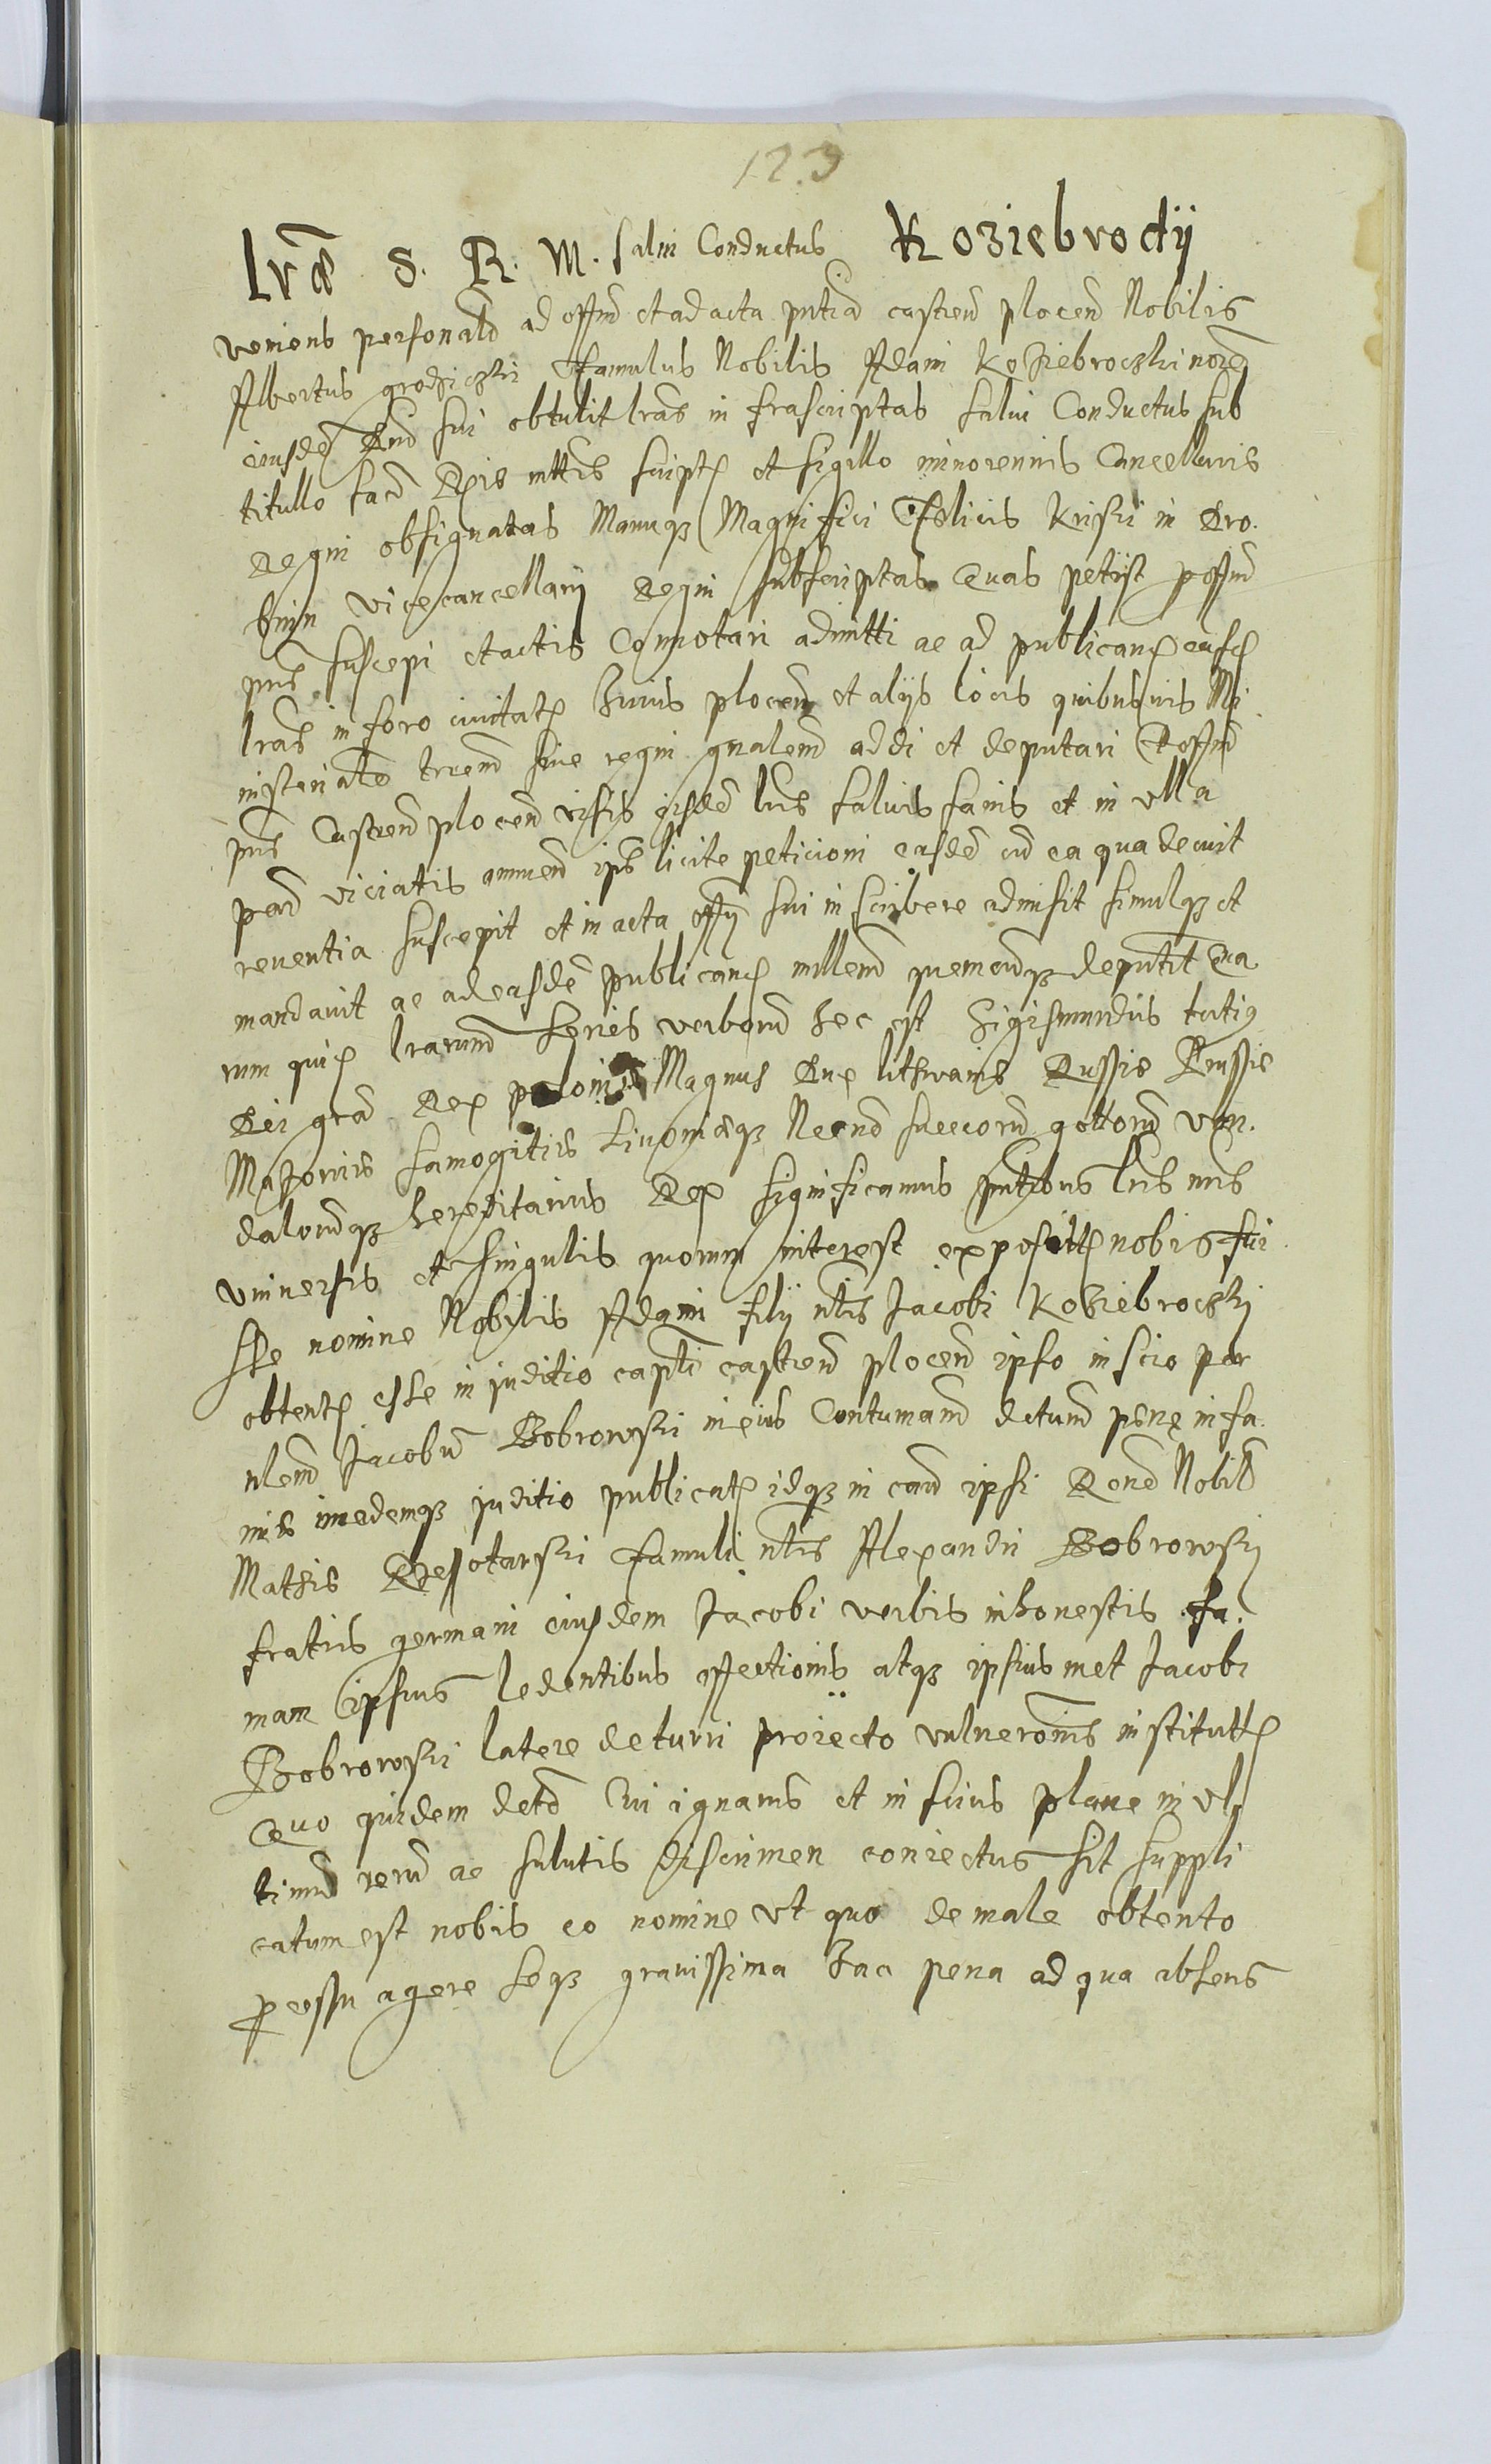 123
lrã S. R. M. salui Conductus Koziebrodÿ
veniens personalr ad offm et ad acta pntia castren plocen Nobilis
Albertus grodzicki famulus Nobilis Adami Koziebrocski noie
eiusde Dni sui obtulit lras in frascriptas salui Conductus sub
titullo sacr Regis mttis script et sigillo minoreniris Cancellaris
Regni obsignatas Manuqz Magnifici Felicis Kriski in Dro.
bnin vicecancellarÿ Regni subscriptas Quas petÿt p offm
pns suscepi et actis Connotari admitti ac ad publicand easd
lras in foro ciuitatis huius plocen et alÿs locis quibusuis Mi
nisterialē trren siue regni gnalem addi et deputari Et offm
pns Castren plocen visis eisde lris saluis sanis et in vlla
parte viciatis annuen ips licite peticioni easde cu ea qua decuit
reuentia suscepit et in acta offÿ sui in scribere admisit simulqz et
mandauit ac ad easde publicand mllem quemcunqz deputtit Qua
rum quid lrarum series verborum hec est Sigismundus tertig
Dei gra Rex polonie Magnus Dux lithwanie Russie Prussie
Mazouie Samogitie Liuoniæqz Necno sueeorum gottorum van.
dalorumqz hereditarius Rex significamus pntibus lris nris
vniuersis et singulis quorum interest expositt nobis fui
sse nomine Nobilis Adami filÿ nlis Jacobi Koziebrockÿ
obtent esse in juditio capti castren plocen ipso inscio per
nlem Jacobu Bobrowski in eius Contumam dctum penę infa.
mie in eodemqz juditio publicat idqz in cau ipsi Rone Nobil
Mathie famuli nlis Alexandri Bobrowskÿ
fratris germani eiusdem Jacobi verbis inhonestis fa.
mam ipsius ledentibus affectionis atqz ipsiusmet Jacobi
Bobrowski latere de turri proiecto vulneronis institutt
Quo quidem dcto Cui ignarus et in scius plane in vl
timu reru ac salutis discrimen coniectus sit suppli
catum est nobis eo nomine vt quo de male obtento
pcessu agere seqz grauissima hac pena ad qua absens